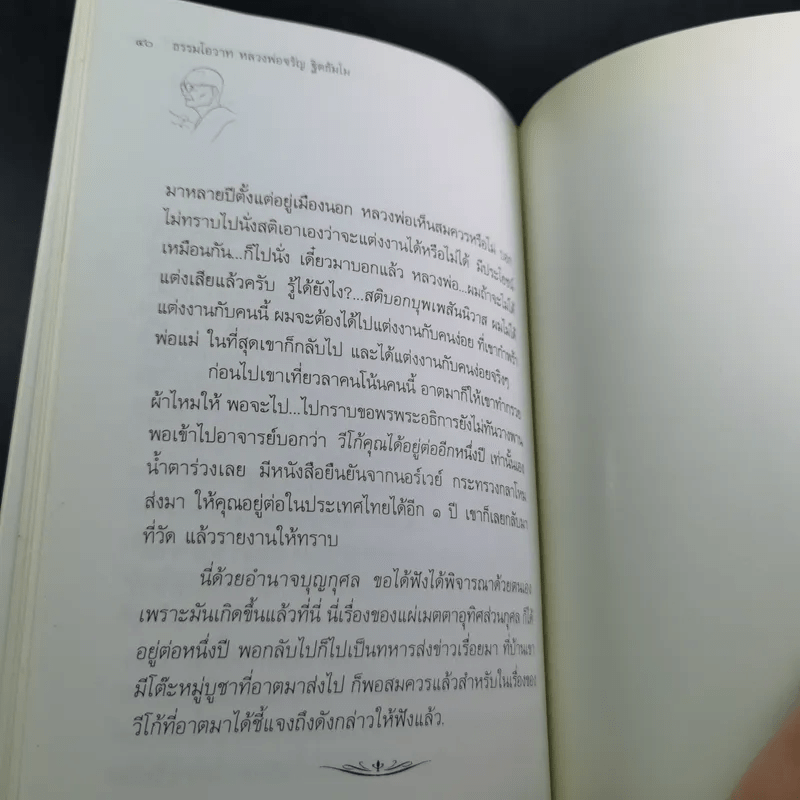 ๔๖ ธรรมโอวาท หลวงพ่อจรัญ ฐิตธัมโม
มาหลายปีตั้งแต่อยู่เมืองนอก หลวงพ่อเห็นสมควรหรือไม่ บอก
ไม่ทราบไปนั่งสติเอาเองว่าจะแต่งงานได้หรือไม่ได้ มีประโยชน์
เหมือนกัน...ก็ไปนั่ง เดี๋ยวมาบอกแล้ว หลวงพ่อ...ผมถ้าจะไม่ได้
แต่งเสียแล้วครับ รู้ได้ยังไง?...สติบอกบุพเพสันนิวาส ผมไม่ได้
แต่งงานกับคนนี้ ผมจะต้องได้ไปแต่งงานกับคนง่อย ที่เขากำพร้า
พ่อแม่ ในที่สุดเขาก็กลับไป และได้แต่งงานกับคนง่อยจริงๆ
ก่อนไปเขาเที่ยวลาคนโน้นคนนี้ อาตมาก็ให้เขาทำกรวย
ผ้าไหมให้ พอจะไป...ไปกราบขอพรพระอธิการยังไม่ทันวางพาน
พอเข้าไปอาจารย์บอกว่า วีโก้คุณได้อยู่ต่ออีกหนึ่งปี เท่านั้นเอง
น้ำตาร่วงเลย มีหนังสือยืนยันจากนอร์เวย์ กระทรวงกลาโหม
ส่งมา ให้คุณอยู่ต่อในประเทศไทยได้อีก ๑ ปี เขาก็เลยกลับมา
ที่วัด แล้วรายงานให้ทราบ
นี่ด้วยอำนาจบุญกุศล ขอได้ฟังได้พิจารณาด้วยตนเอง
เพราะมันเกิดขึ้นแล้วที่นี่ นี่เรื่องของแผ่เมตตาอุทิศส่วนกุศล ก็ได้
อยู่ต่อหนึ่งปี พอกลับไปก็ไปเป็นทหารส่งข่าวเรื่อยมา ที่บ้านเขา
มีโต๊ะหมู่บูชาที่อาตมาส่งไป ก็พอสมควรแล้วสำหรับในเรื่องของ
วีโก้ที่อาตมาได้ชี้แจงถึงดังกล่าวให้ฟังแล้ว.